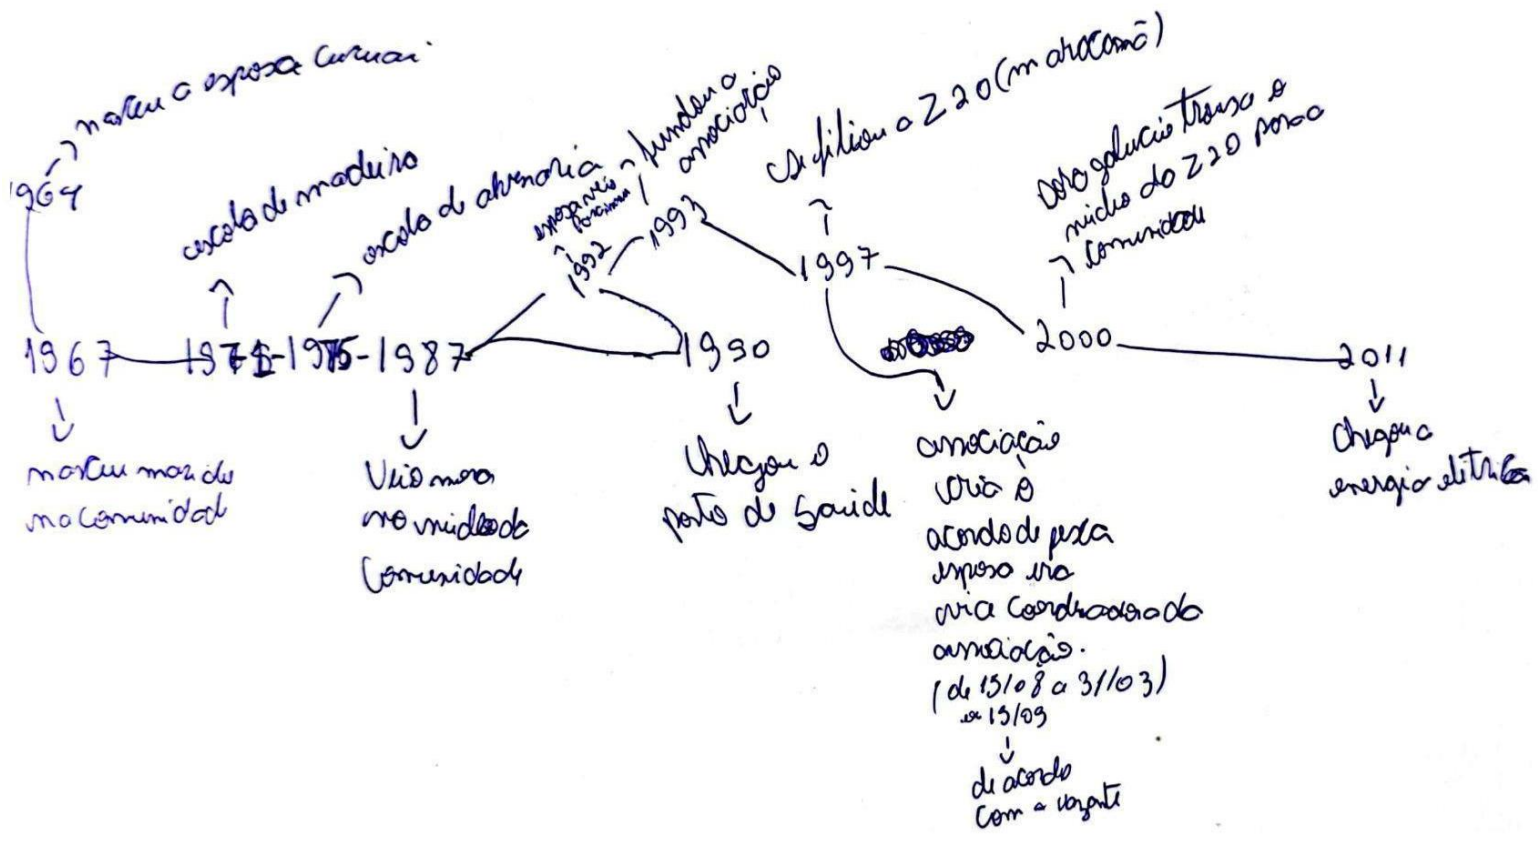 nasceu a esposa Curuai
1964
escola de madeira
escola de alvenaria
esposa veio
fundou a
associação
se filiou a Z20 (maracanã)
trouxe o
núcleo da Z20 para a
comunidade
1992
1993
1997
2000
1967
1975-1987
1990
2011
nasceu marido
na comunidade
Veio mora
no núcleo da
Comunidade
Chegou o
posto de Saúde
associação
cria o
acordo de pesca
esposa era
vice Coordenadora da
associação.
(de 15/08 a 31/03)
15/09
de acordo
com a vazante
Chegou a
energia elétrica